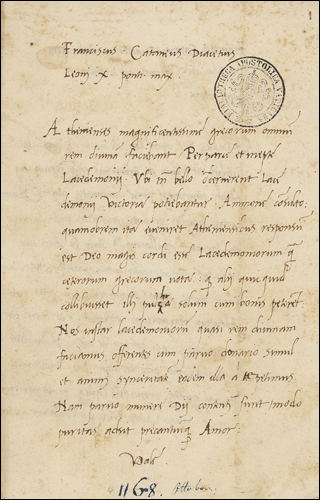 1
Franciscus Cataneus Diacetius
Leonj · X · pont: max
BIBLIOTHECA APOSTOLICA VATICANA
Athenienses magnificentissime grecorum omnium
rem divinā faciebant Persarū et
Lacedemonij. Ubi in bello Lace
demonij Victoria potiebantur Ammone consulto:
quamobrem ita eveniret Atheniensibus responsum
est Deo magis cordi esse Lacedemoniorum
ceterorum grecorum vota: alij quicquid
collibuisset illj solum cum bonis peteret.
Nos instar lacedemonij quasi rem divinam
facimus offerentes cum parvo donario simul
et animi synceritate eadem illa a te petimus.
Nam parvo munere Dij contenti sunt modo
puritas adsit precantium Amor:
Vale
1168. Ottobon.